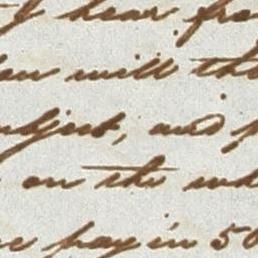 I hear fro
will the
subject, and p
on the sub
pay in 50